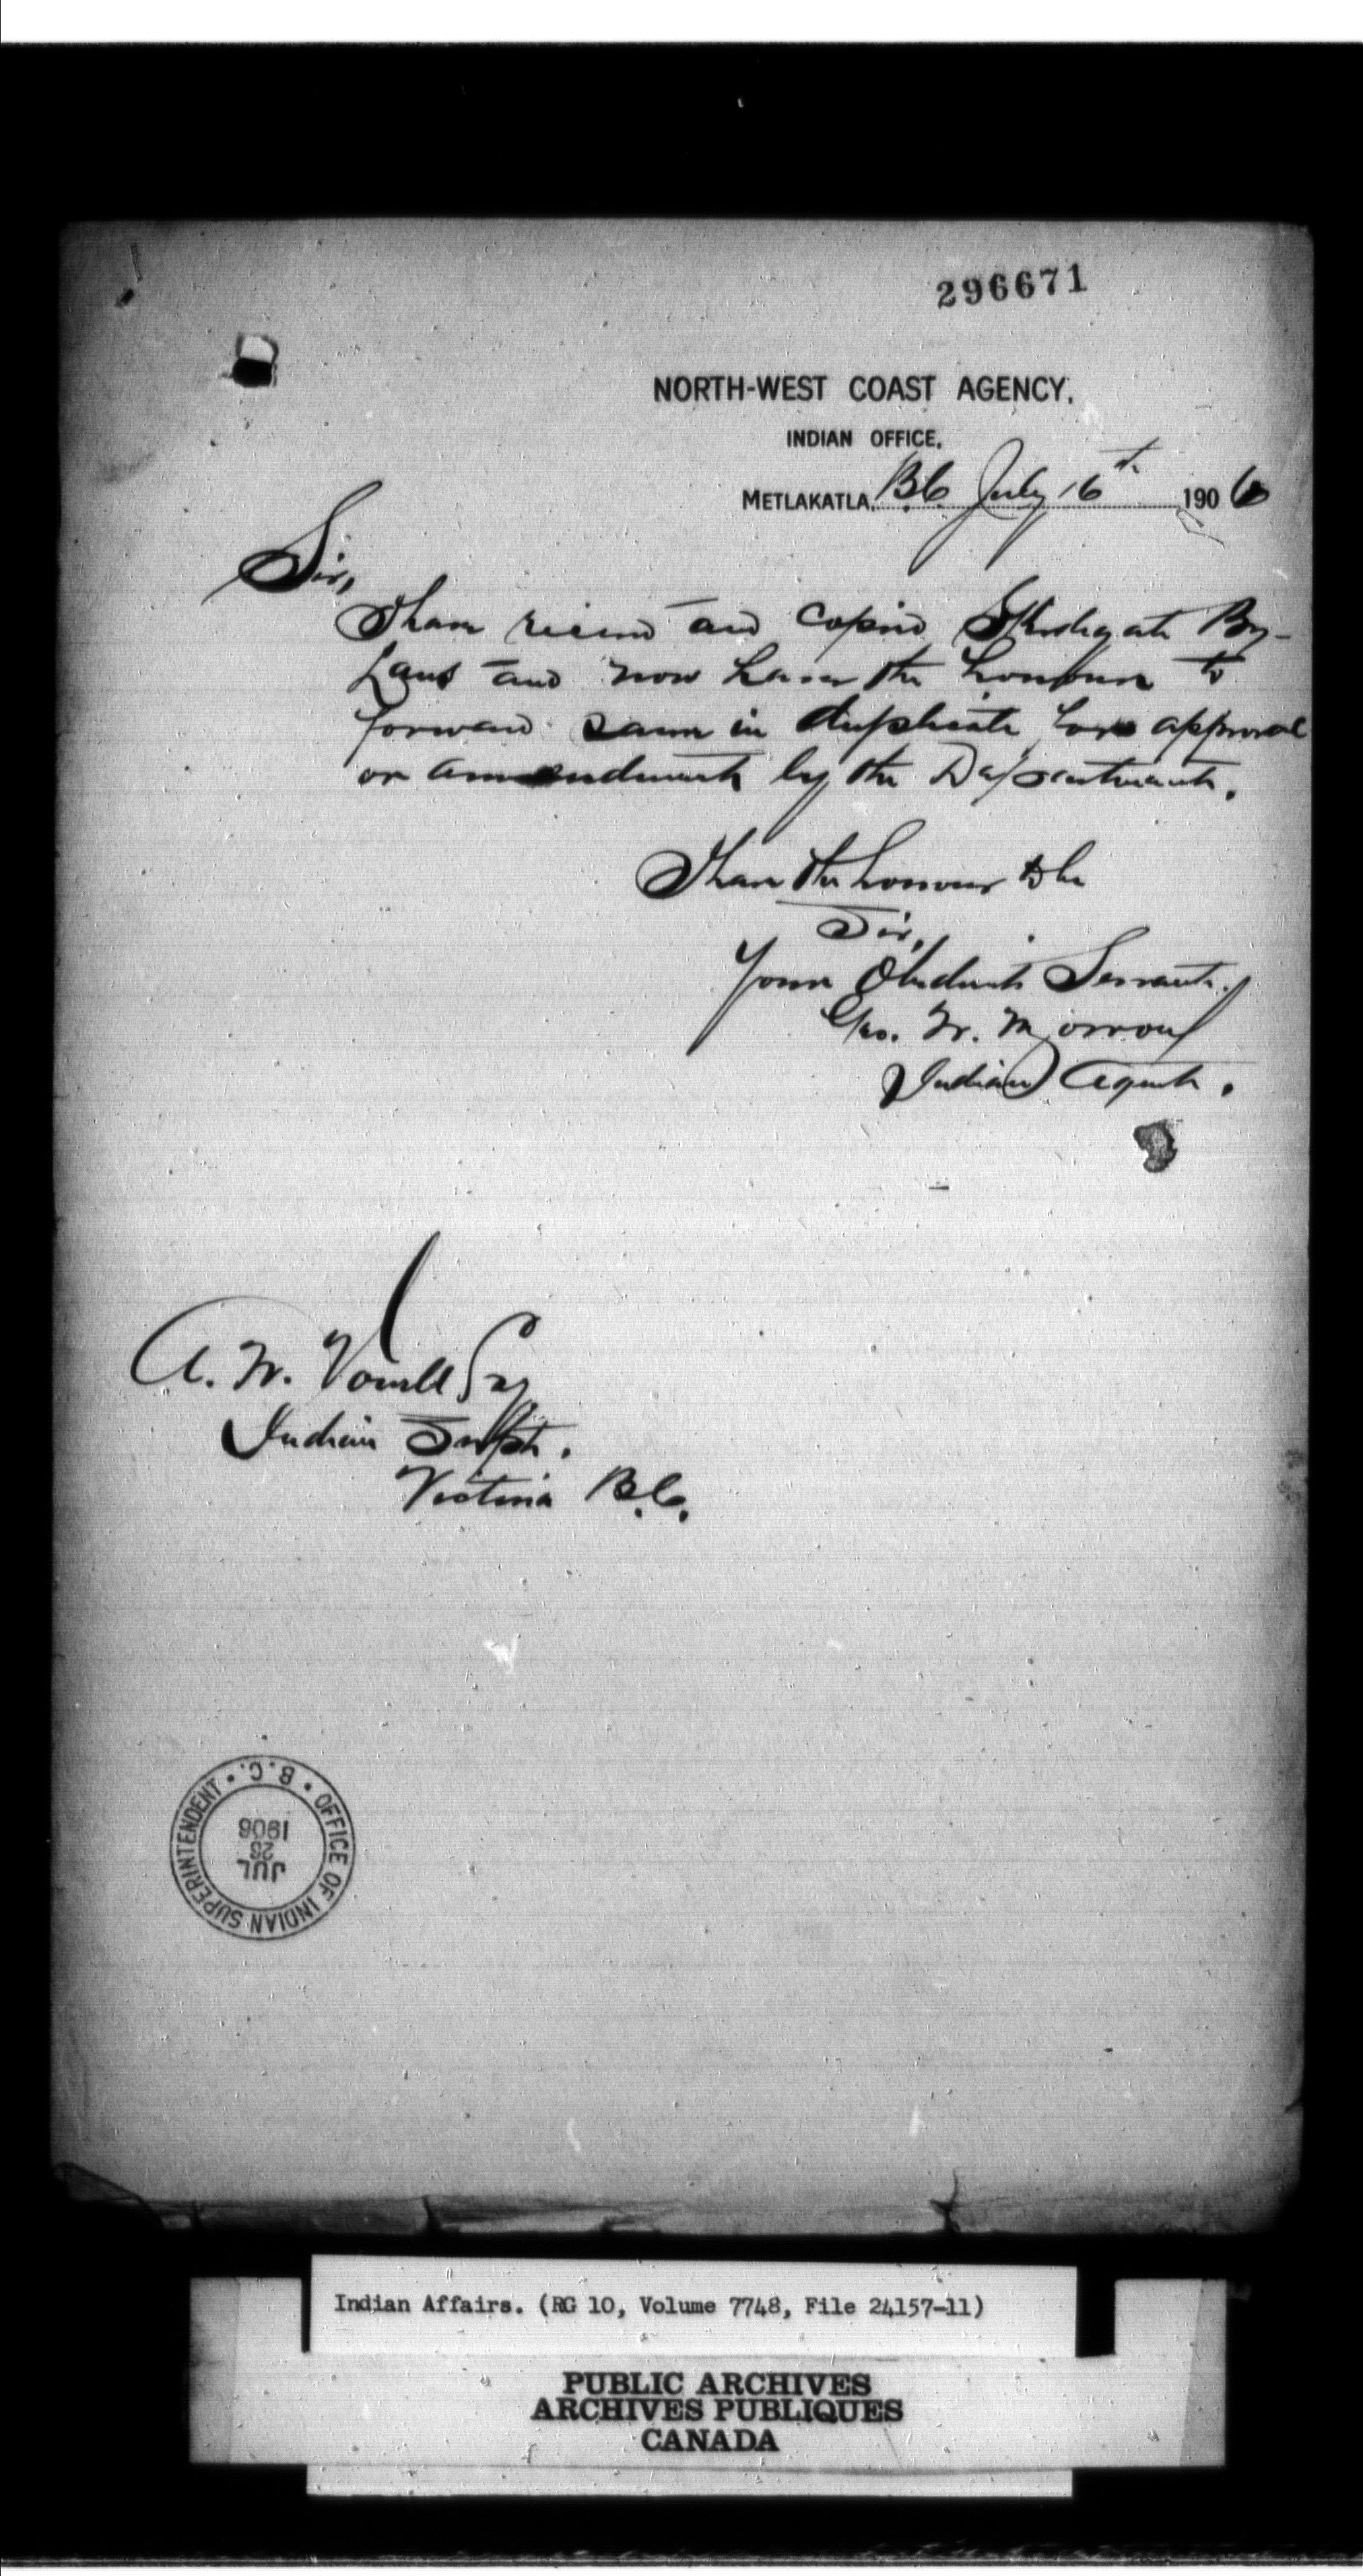 296671
NORTH-WEST COAST AGENCY.
INDIAN OFFICE.
METLAKATLA, B.C. July 16th 1906
Sir,
I have and copied Skidegate By-
Laws and now have the honour to
forward same in duplicate for approval
or amendment by the Department.
I have the honour to be
Sir,
Your Obedient Servant,
Geo. W. Morrow
Indian Agent.
A. W. Vowell Esq
Indian Supt.
Victoria B.C.
OFFICE OF INDIAN SUPERINTENDENT • B.C. •
JUL
1906
Indian Affairs. (RG 10, Volume 7748, File 24157-11)
PUBLIC ARCHIVES
ARCHIVES PUBLIQUES
CANADA